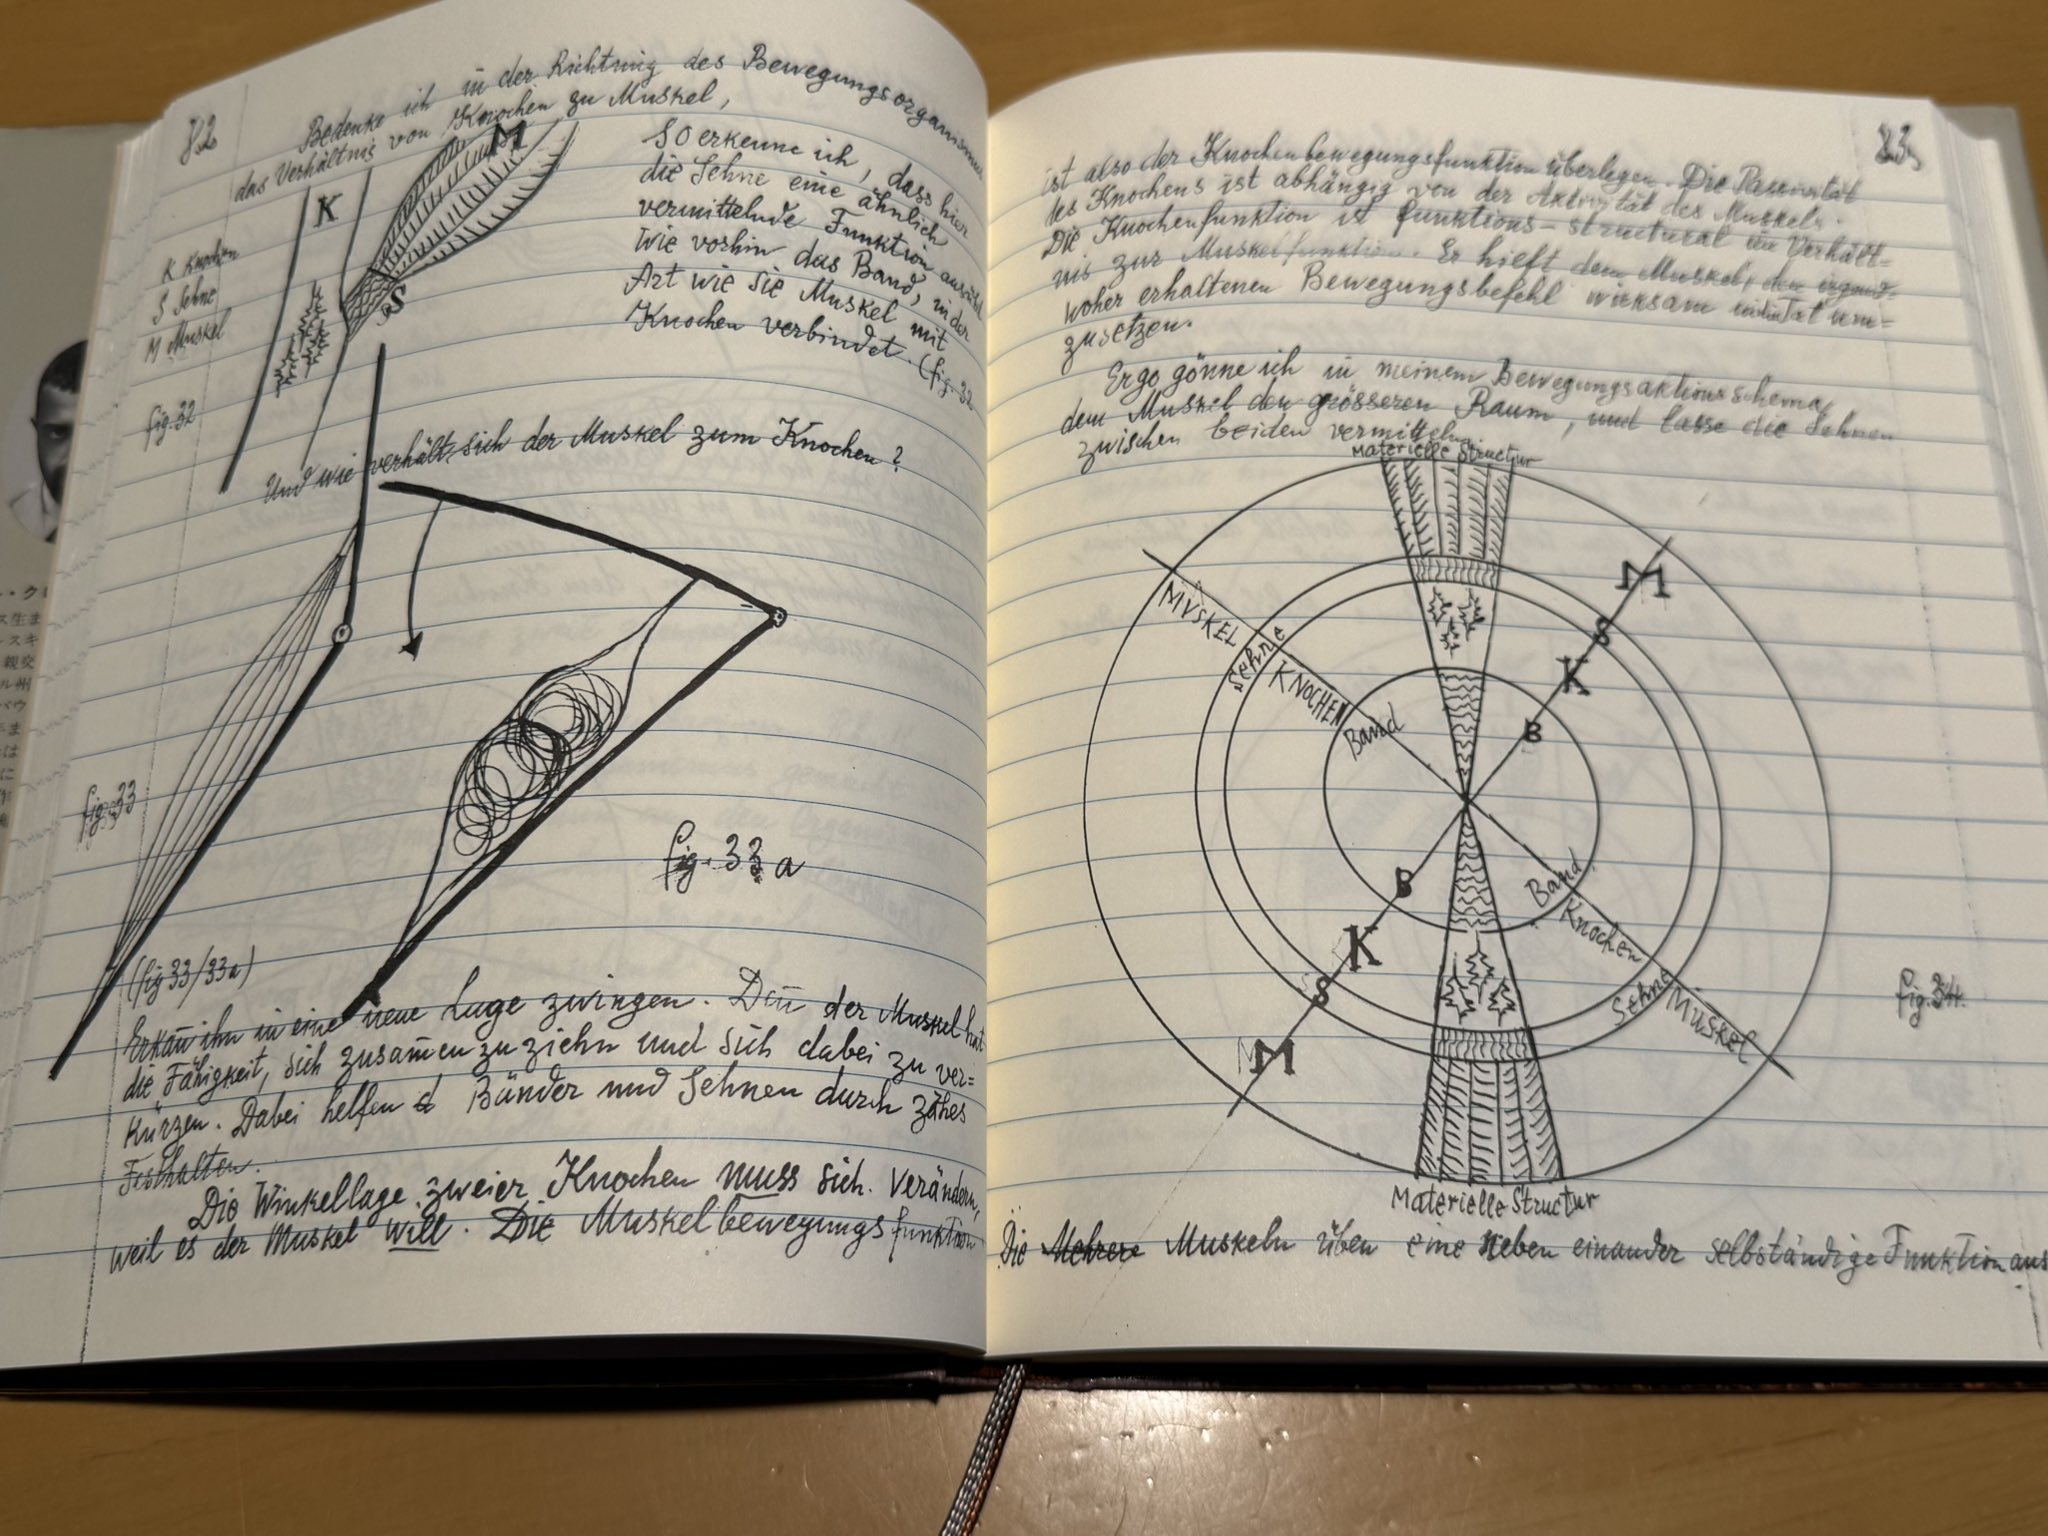 82
Bedenke ich in der Richtung des Bewegungsorganismus
das Verhältnis von Knochen zu Muskel,
M
K
S
K Knochen
S Sehne
M Muskel
fig. 32
So erkenne ich, dass hier
die Sehne eine ähnlich
vermittelnde Funktion ausübt
wie vorhin das Band, in der
Art wie sie Muskel mit
Knochen verbindet. (fig. 32
Und wie verhält sich der Muskel zum Knochen?
fig. 33
fig. 33 a
(fig 33/33a)
Er kañ ihn in eine neue Lage zwingen. Deñ der Muskel hat
die Fähigkeit, sich zusam̄en zu ziehn und sich dabei zu ver=
kürzen. Dabei helfen d Bänder und Sehnen durch zähes
Festhalten.
Die Winkellage zweier Knochen muss sich verändern,
weil es der Muskel will. Die Muskelbewegungsfunktion
83
ist also der Knochenbewegungsfunktion überlegen. Die Passivität
des Knochens ist abhängig von der Aktivität des Muskels.
Die Knochenfunktion ist funktions-structural im Verhält=
nis zur Muskelfunktion. Er hilft dem Muskel, den irgend=
woher erhaltenen Bewegungsbefehl wirksam in die Tat um=
zusetzen.
Ergo gönne ich in meinem Bewegungsaktionsschema
dem Muskel den grösseren Raum, und lasse die Sehnen
zwischen beiden vermitteln.
Materielle Structur
MUSKEL
Sehne
KNOCHEN
Band
M
S
K
B
B
K
S
M
Band
Knochen
Sehne
Muskel
fig. 34.
Materielle Structur
Die Mehrere Muskeln üben eine neben einander selbständige Funktion aus